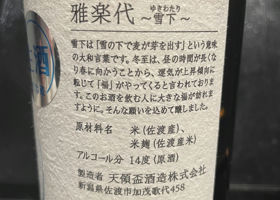 雅楽代
ゆきわたり
～雪下～
雪下は「雪の下で麦が芽を出す」という意味
の大和言葉です。冬至は、昼の時間が長く
なり春に向かうことから、運気が上昇傾向に
転じて「福」がやってくると言われておりま
す。このお酒を飲む人に大きな福が訪れ
ますように。そんな願いを込めて醸しました。
原材料名 米(佐渡産)、
米麹(佐渡産米)
アルコール分 14度(原酒)
製造者 天領盃酒造株式会社
新潟県佐渡市加茂歌代458
酒